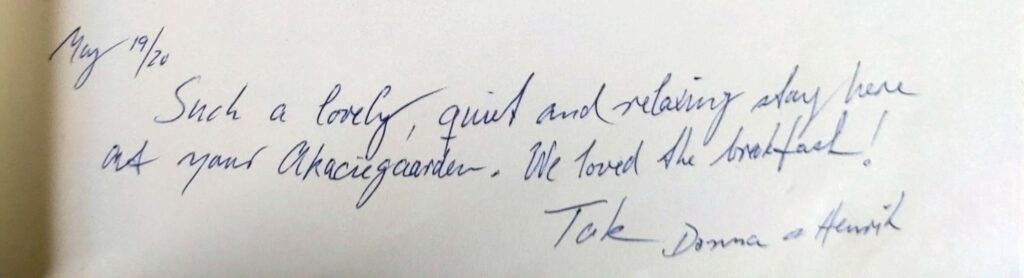 May 19/20
Such a lovely, quiet and relaxing stay here
at your Akaciegaarden. We loved the breakfast!
Tak Donna & Henrik